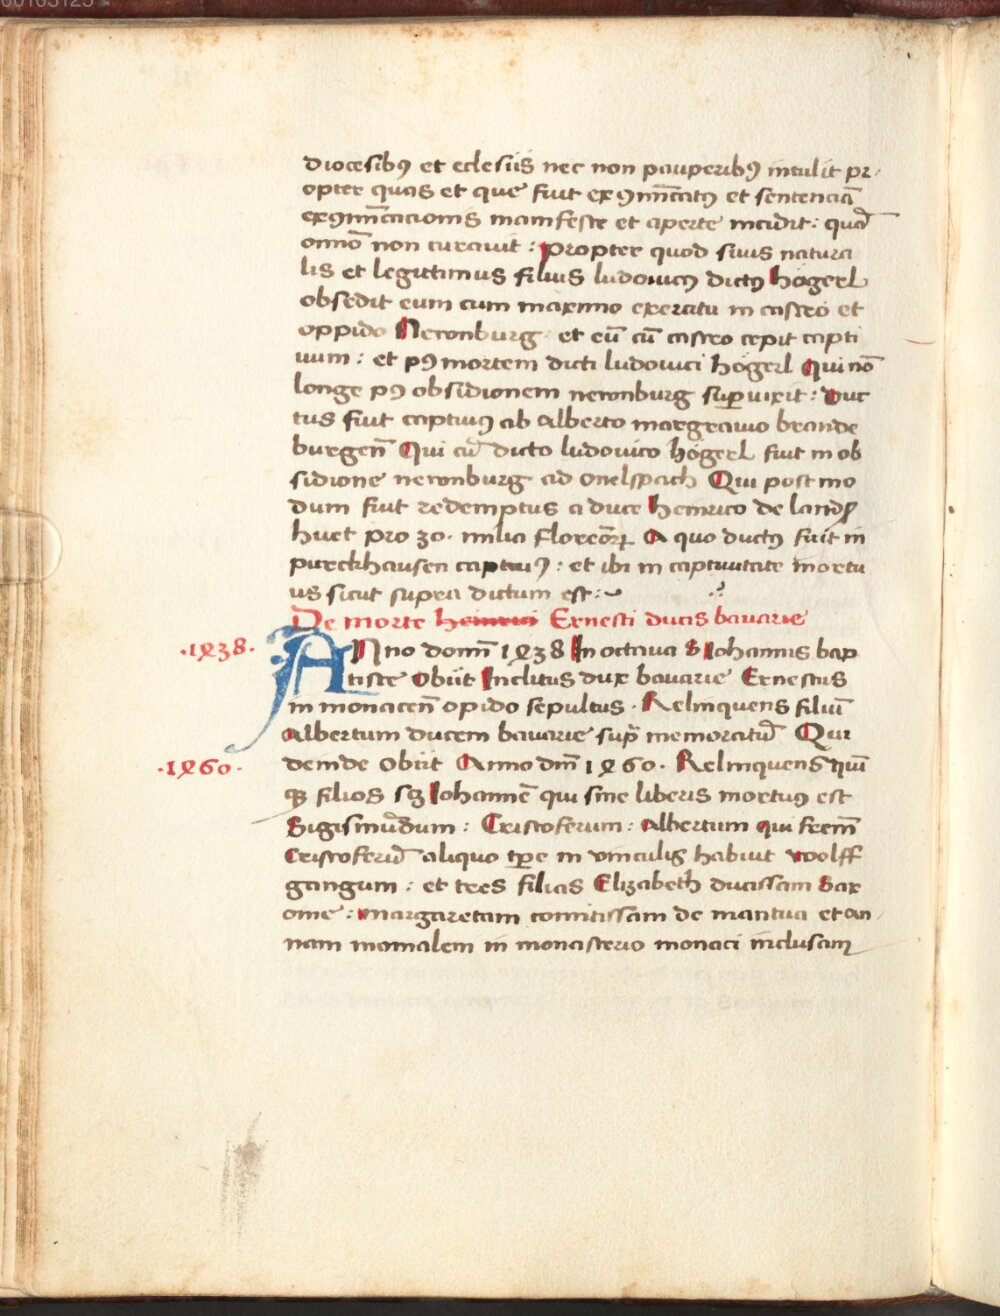 00103125
diocesibꝰ et eclesiis nec non pauperibꝰ intulit pr-
opter quas et que fuit exꝯmu̅icatꝰ et sentencia̅
exꝯmu̅icacionis manifeste et aperte incidit: qua̅
omo̅ non curauit: Propter quod suus natura
lis et legittimus filius ludouicꝰ dictꝰ högerl
obsedit eum cum maximo exercitu in castro et
oppido Newnburg et eu̅ cu̅ castro cepit capti
uum: et pꝰ mortem dicti ludouici högerl Qui no̅
longe pꝰ obsidionem newnburg suꝑuixit: Duc
tus fuit captiuꝰ ab Alberto margrauio brande
burgen̅ Qui cu̅ dicto ludouico högerl fuit in ob
sidione newnburg ad onelspach Qui post mo
dum fuit redemptus a duce heinrico de land
huet pro 30. milia florenoꝝ A quo ductꝰ fuit in
purckhausen captiuꝰ: et ibi in captiuitate mortu
us sicut supra dictum est:
De morte heinrici Ernesti ducis bauarie
.1238. ANno domi̅ 1238 In octaua S Iohannis bap
tiste Obiit Inclitus dux bauarie Ernestus
in monacen̅ opido sepultus. Relinquens filiu̅
Albertum ducem bauarie sup̅ memoratu̅ Qui
.1260. deinde Obiit Anno dm̅ 1260. Relinquens qui̅
qꝫ filios sꝫ Iohanne̅ qui sine liberis mortuꝰ est
Sigismu̅dum: Cristoferum: Albertum qui frem̅
Cristoferu̅ aliquo tꝑe in vinculis habuit woolff
gangum: et tres filias Elizabeth ducissam Sax
onie: Margaretam comitissam de mantua et an
nam monialem in monasterio monaci inclusam